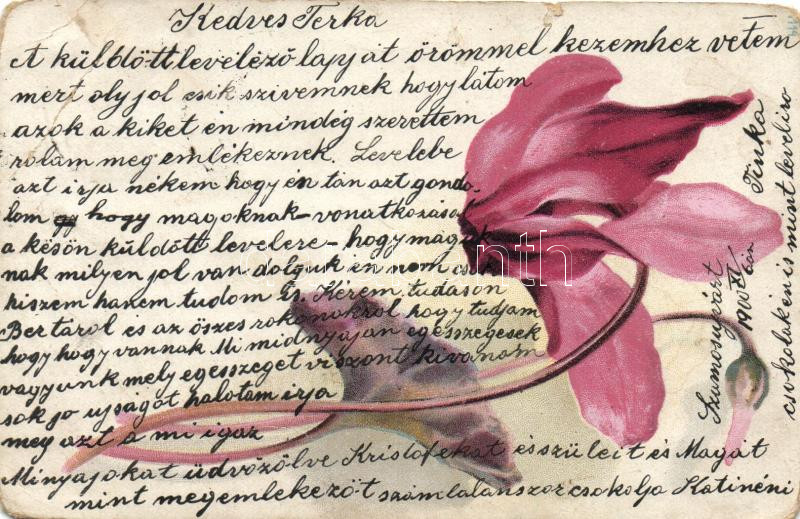 Kedves Terka
A küldött levelező lapját örömmel kezemhez vetem
mert oly jol esik szivemnek hogy látom
azok a kiket én mindég szerettem
rolam meg emlékeznek. Levelebe
azt irja nékem hogy én tán azt gondo-
lom hogy magoknak – vonatkosása
a késön küldött levelere – hogy maguk
nak milyen jol van dolguk én nem csak
hiszem hanem tudom is. Kérem tudason
Bertárol és az öszes rokonokrol hogy tudjam
hogy hogy vannak Mi midnyájan egesszegesek
vagyunk mely egesszeget viszont kivánom
sok jo ujságot halotam irja
meg azt a mi igaz
Minyajokat üdvözölve Kristofekat és szüleit és Magát
mint megemlekezöt számlalanszor csokolja Katinéni
Szamosujvárt
1900 XI/
Tinka
csokolak én is mint leveliro